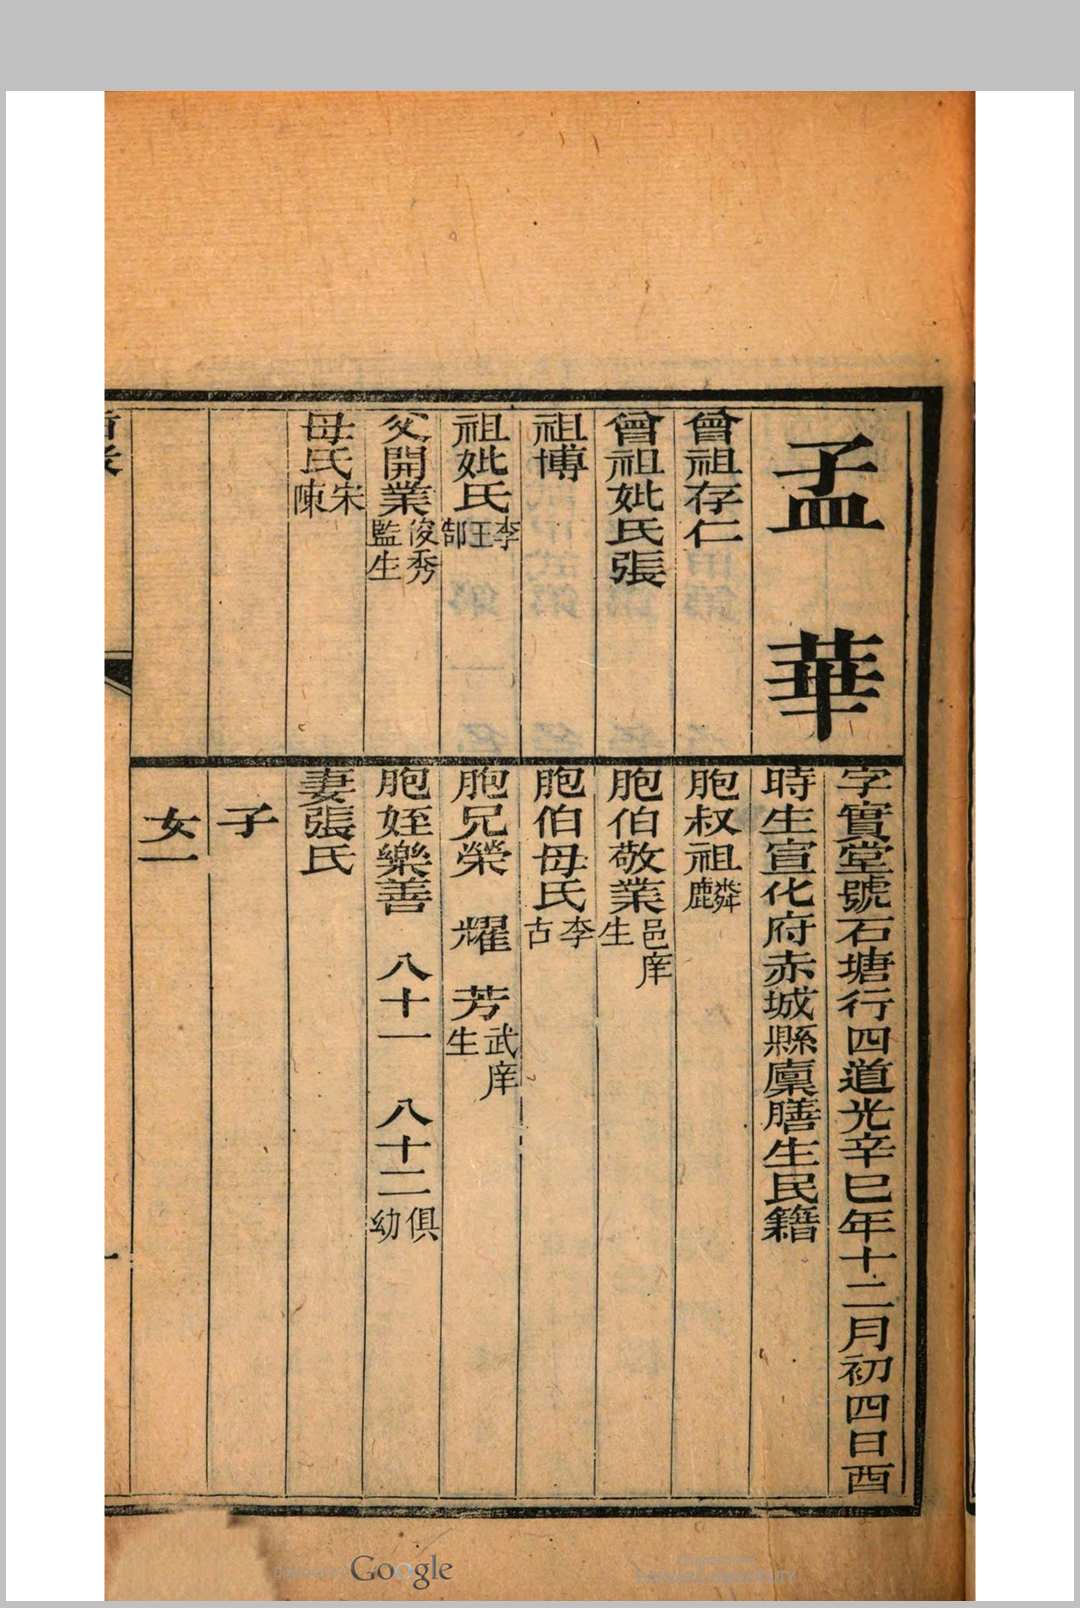 孟華
字實堂號石塘行四道光辛巳年十二月初四日酉
時生宣化府赤城縣廩膳生民籍
曾祖存仁
曾祖妣氏張
祖博
祖妣氏李王郜
父開業俊秀監生
母氏宋陳
胞叔祖麟麟
胞伯敬業邑庠生
胞伯母氏李古
胞兄榮 耀 芳武庠生
胞姪樂善 八十一 八十二俱幼
妻張氏
子
女一
Google